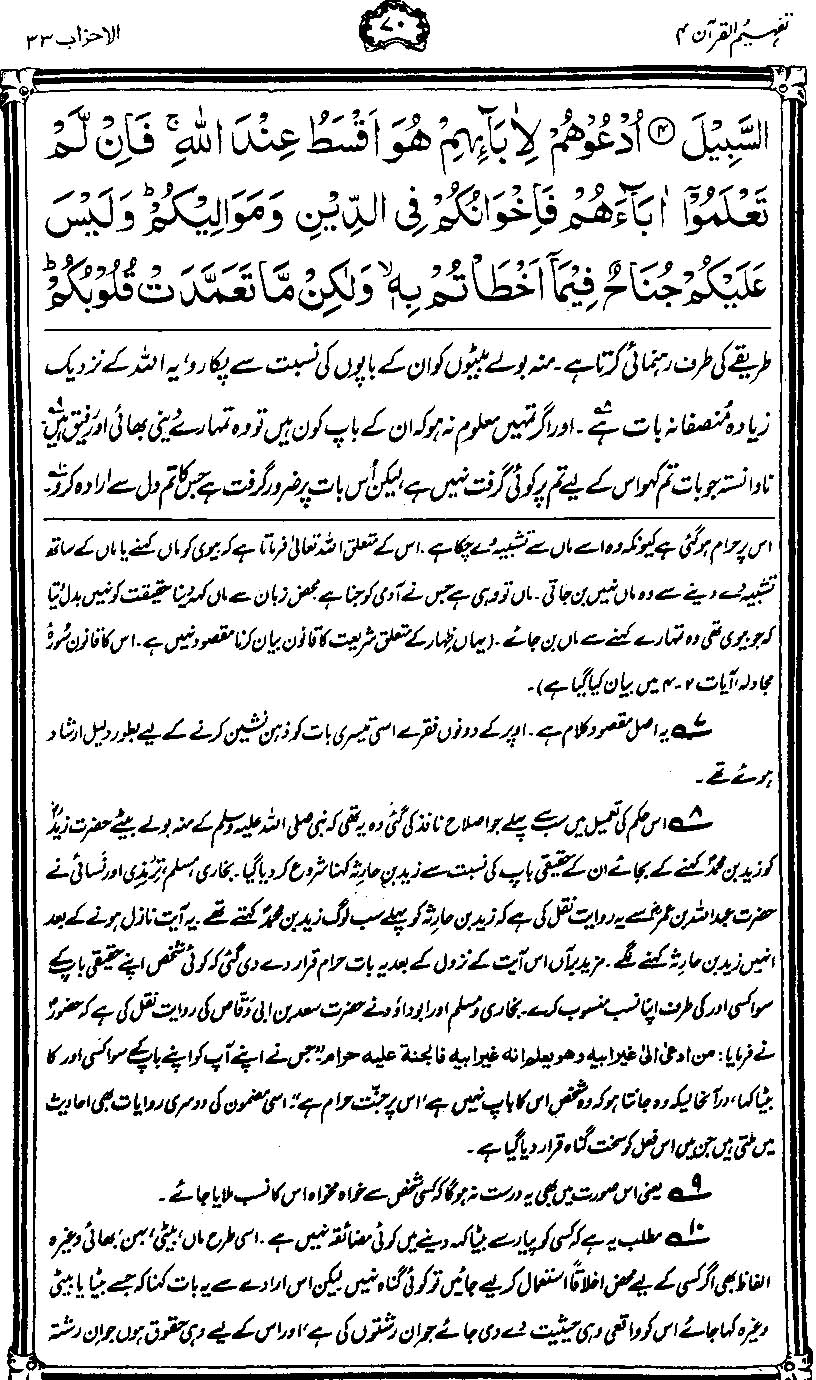 تفہیم القرآن ۴
۷۰
الاحزاب ۳۳
السَّبِيْلَ ۴ اُدْعُوْهُمْ لِاٰبَآئِهِمْ هُوَ اَقْسَطُ عِنْدَ اللّٰهِ ۚ فَاِنْ لَّمْ
تَعْلَمُوْۤا اٰبَآءَهُمْ فَاِخْوَانُكُمْ فِى الدِّيْنِ وَمَوَالِيْكُمْ ؕ وَلَيْسَ
عَلَيْكُمْ جُنَاحٌ فِيْمَاۤ اَخْطَاْتُمْ بِهٖ ۙ وَلٰكِنْ مَّا تَعَمَّدَتْ قُلُوْبُكُمْ ؕ
طریقے کی طرف رہنمائی کرتا ہے۔ منہ بولے بیٹوں کو ان کے باپوں کی نسبت سے پکارو، یہ اللہ کے نزدیک
زیادہ مُنصفانہ بات ہے۸۔ اور اگر تمہیں معلوم نہ ہو کہ ان کے باپ کون ہیں تو وہ تمہارے دینی بھائی اور رفیق ہیں۹
نادانستہ جو بات تم کہو اس کے لیے تم پر کوئی گرفت نہیں ہے، لیکن اُس بات پر ضرور گرفت ہے جس کا تم دل سے ارادہ کرو۱۰۔
اس پر حرام ہو گئی ہے کیونکہ وہ اسے ماں سے تشبیہ دے چکا ہے۔ اس کے متعلق اللہ تعالیٰ فرماتا ہے کہ بیوی کو ماں کہنے یا ماں کے ساتھ
تشبیہ دے دینے سے وہ ماں نہیں بن جاتی۔ ماں تو وہی ہے جس نے آدمی کو جنا ہے۔ محض زبان سے ماں کہہ دینا حقیقت کو نہیں بدل دیتا
کہ جو بیوی تھی وہ تمہارے کہنے سے ماں بن جائے۔ (یہاں ظہار کے متعلق شریعت کا قانون بیان کرنا مقصود نہیں ہے۔ اس کا قانون سُورۂ
مجادلہ، آیات ۲-۴ میں بیان کیا گیا ہے)۔
۷ یہ اصل مقصود کلام ہے۔ اوپر کے دونوں فقرے اسی تیسری بات کو ذہن نشین کرنے کے لیے بطور دلیل ارشاد
ہوئے تھے۔
۸ اس حکم کی تعمیل میں سب سے پہلے جو اصلاح نافذ کی گئی وہ یہ تھی کہ نبی صلی اللہ علیہ وسلم کے منہ بولے بیٹے حضرت زیدؓ
کو زید بن محمدؐ کہنے کے بجائے ان کے حقیقی باپ کی نسبت سے زید بن حارثہ کہنا شروع کر دیا گیا۔ بخاری، مسلم، ترمذی اور نسائی نے
حضرت عبداللہ بن عمرؓ سے یہ روایت نقل کی ہے کہ زید بن حارثہ کو پہلے سب لوگ زید بن محمدؐ کہتے تھے۔ یہ آیت نازل ہونے کے بعد
انہیں زید بن حارثہ کہنے لگے۔ مزید برآں اس آیت کے نزول کے بعد یہ بات حرام قرار دے دی گئی کہ کوئی شخص اپنے حقیقی باپ کے
سوا کسی اور کی طرف اپنا نسب منسوب کرے۔ بخاری و مسلم اور ابوداؤد نے حضرت سعد بن ابی وقّاص کی روایت نقل کی ہے کہ حضورؐ
نے فرمایا: من ادعیٰ الیٰ غیرابیہ وھو یعلم انہ غیرابیہ فالجنۃ علیہ حرام۔ ”جس نے اپنے آپ کو اپنے باپ کے سوا کسی اور کا
بیٹا کہا، درآنحالیکہ وہ جانتا ہو کہ وہ شخص اس کا باپ نہیں ہے، اس پر جنّت حرام ہے“۔ اسی مضمون کی دوسری روایات بھی احادیث
میں ملتی ہیں جن میں اس فعل کو سخت گناہ قرار دیا گیا ہے۔
۹ یعنی اس صورت میں بھی یہ درست نہ ہوگا کہ کسی شخص سے خواہ مخواہ اس کا نسب ملایا جائے۔
۱۰ مطلب یہ ہے کہ کسی کو پیار سے بیٹا کہہ دینے میں کوئی مضائقہ نہیں ہے۔ اسی طرح ماں، بیٹی، بہن، بھائی وغیرہ
الفاظ بھی اگر کسی کے لیے محض اخلاقاً استعمال کر لیے جائیں تو کوئی گناہ نہیں۔ لیکن اس ارادے سے یہ بات کہنا کہ جسے بیٹا یا بیٹی
وغیرہ کہا جائے اس کو واقعی وہی حیثیت دے دی جائے جو ان رشتوں کی ہے، اور اس کے لیے وہی حقوق ہوں جو ان رشتہ